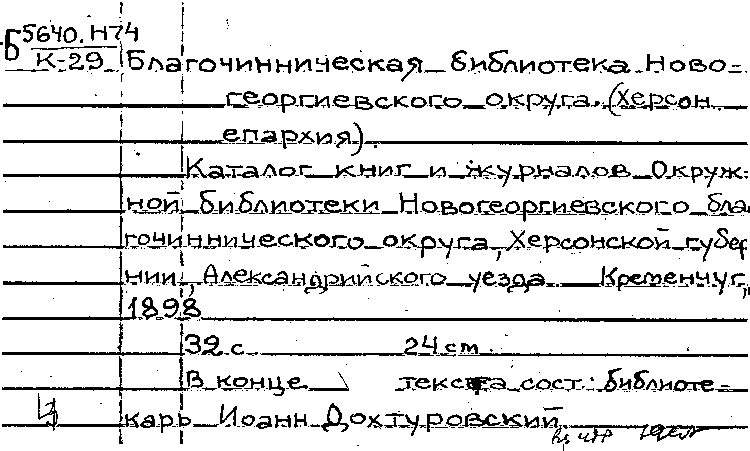 Б 5640.Н74
К-29 Благочинническая библиотека Ново-
георгиевского округа. (Херсон
епархия).
Каталог книг и журналов Окруж-
ной библиотеки Новогеоргиевского бла
гочиннического округа, Херсонской губер
нии, Александрийского уезда Кременчуг,
1898
32 с. 24 cm.
В конце текста сост: библиоте-
карь Иоанн Дохтуровский